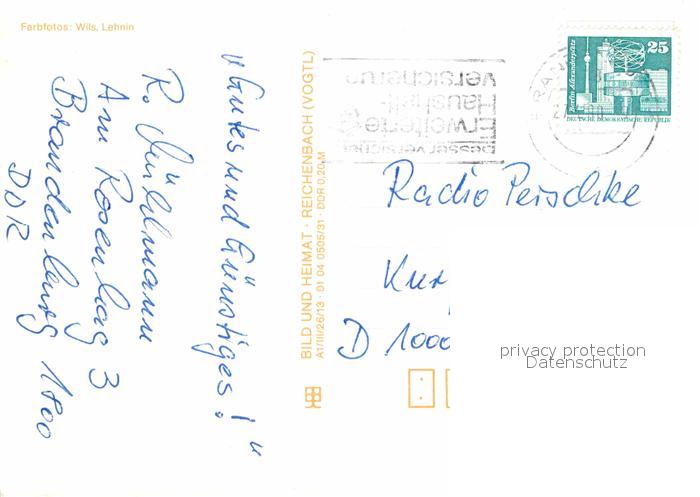 Farbfotos: Wils, Lehnin
"Gutes und Günstiges!"
R. Mühlmann
Am Rosenhag 3
Brandenburg 1800
DDR
BILD UND HEIMAT · REICHENBACH (VOGTL)
A1/III/26/13 · 01 04 0505/31 · DDR 0,20 M
besser versichert
Erweiterte
Haushalt-
versicherung
25
Berlin, Alexanderplatz
DEUTSCHE DEMOKRATISCHE REPUBLIK
Radio Peischke
Kur
D 1000
privacy protection
Datenschutz